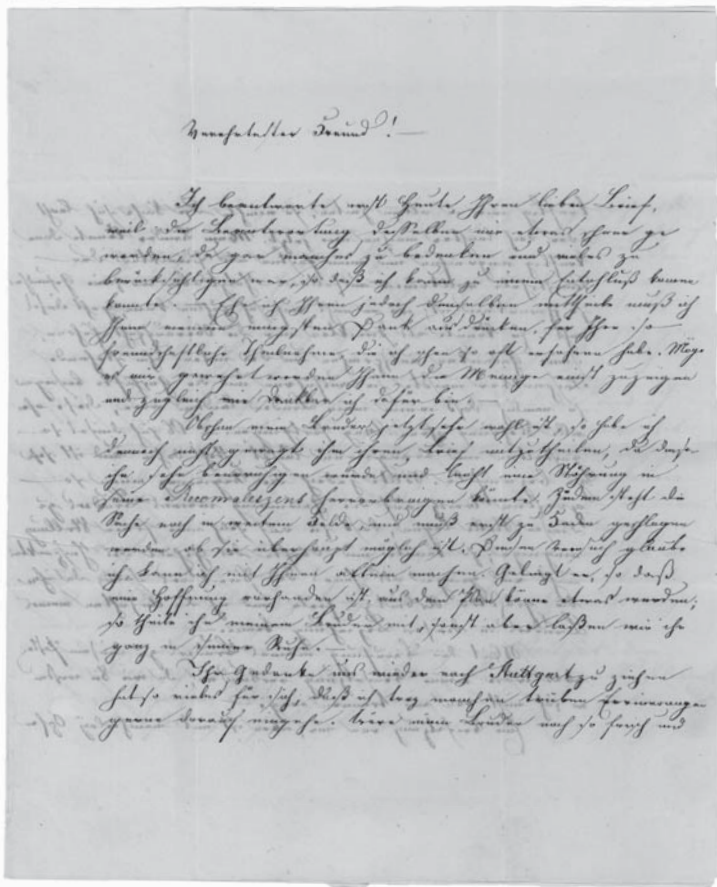 Verehrtester Freund! —
Ich beantworte erst heute, Ihren lieben Brief,
weil die Beantwortung desselben mir etwas schwer ge
worden, da gar manches zu bedenken und vieles zu
berücksichtigen war, so daß ich kaum zu einem Entschluß kommen
konnte. — Ehe ich Ihnen jedoch denselben mittheile muß ich
Ihnen meinen innigsten Dank ausdrücken, für Ihre so
freundschaftliche Theilnahme, die ich schon so oft erfahren habe. Möge
es mir gewährt werden Ihnen die einst zuzeigen
und zugleich wie dankbar ich dafür bin. —
Obschon mein Bruder jetzt sehr wohl ist, so habe ich
dennoch nicht gewagt ihm ihren Brief mitzutheilen, da diese
ihn sehr beunruhigen würde und leicht eine Störung in
seiner Reconvaleszens hervorbringen könnte. Zudem steht die
Sache noch in weitem Felde, und muß erst zu Faden geschlagen
werden ob sie überhaupt möglich ist. Diesen Versuch glaube
ich kann ich mit Ihnen allein machen. Gelingt er, so daß
eine Hoffnung vorhanden ist, aus dem Plan könne etwas werden;
so theile ich's meinem Bruder mit, sonst aber laßen wir ihn
ganz in seiner Ruhe. —
Ihr Gedanke uns wieder nach Stuttgart zu ziehen
hat so vieles für sich, daß ich troz manchen trüben Errinerungen
gerne darauf eingehe. Wäre mein Bruder noch so frisch und